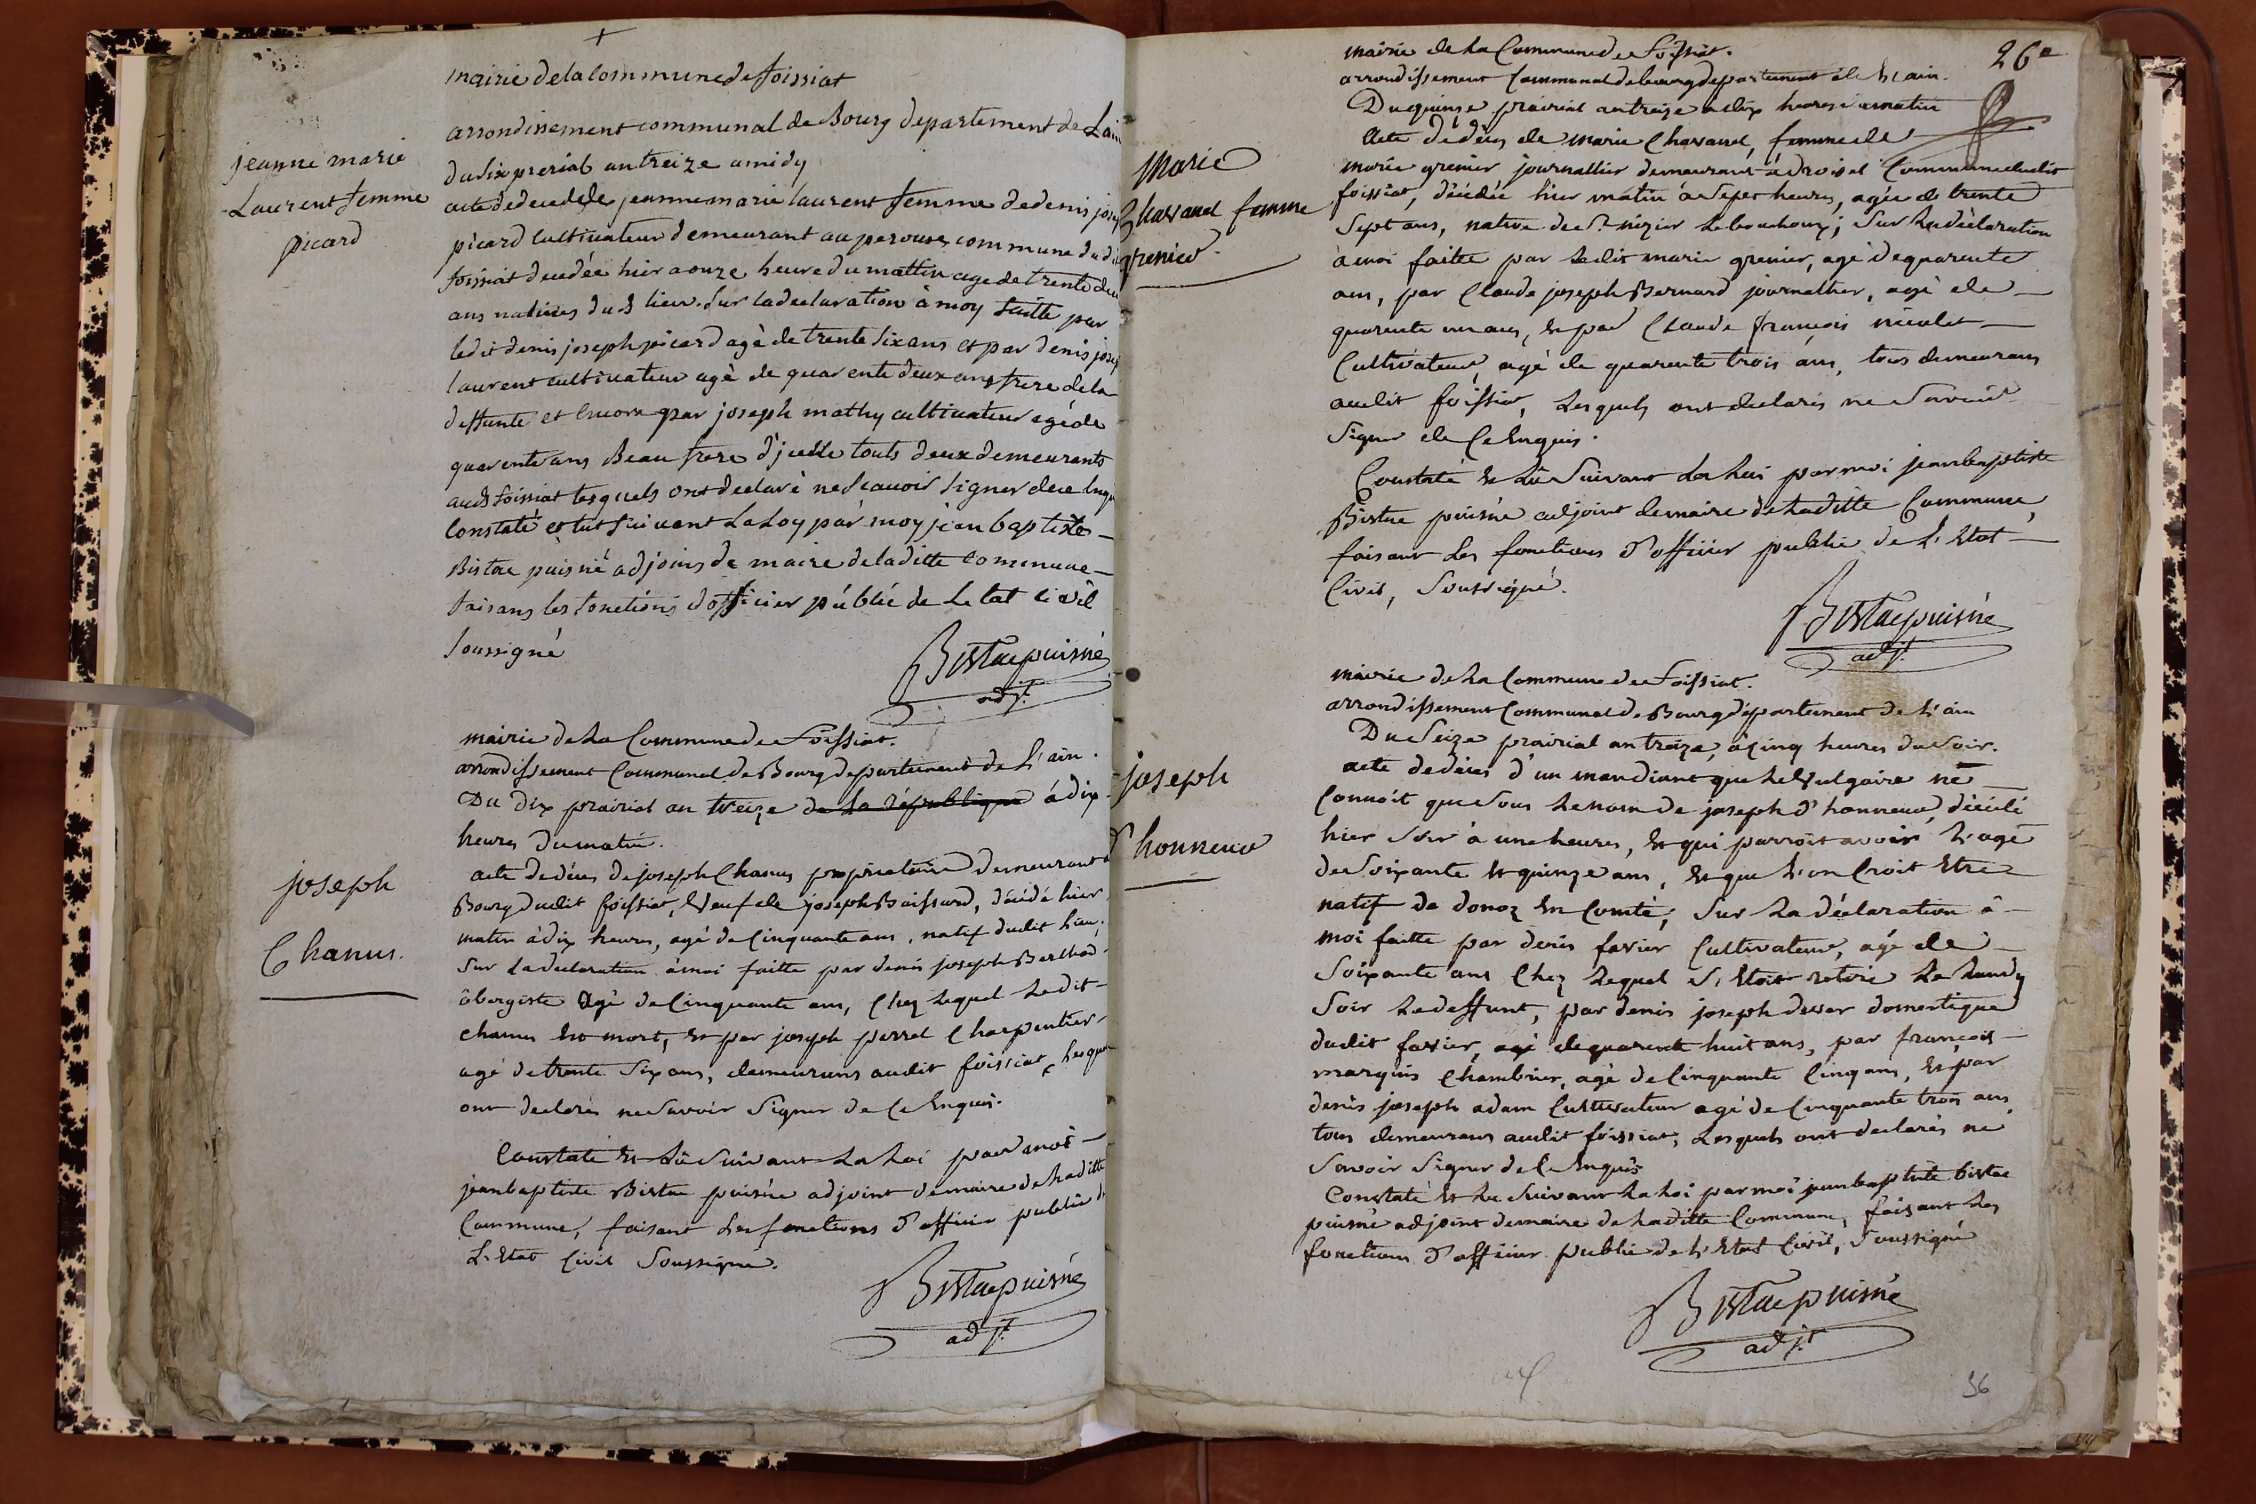 mairie de la commune de foissiat
arrondissement communal de Bourg departement de Lain
du six prerial an treize a midy
acte de decede de jeanne marie laurent femme de denis josep
picard cultivateur demeurant au perouses commune du di
foissiat decedée hier a onze heure du mattin age de trente deu
ans natives dud lieu. Sur la declaration à moy faitte par
ledit denis joseph picard agè de trente six ans et par denis josep
laurent cultivateur agè de quarente deux ans frere de la
deffunte et encore par joseph mathy cultivateur agé de
quarente ans Beau frere d'jcelle touts deux demeurants
aud foissiat lesquels ont declarè ne scavoir signer de ce enqu
Constaté et lut suivant La Loy par moy jean baptiste
Bistae puisné adjoins de maire de laditte commune
faisans les fonctions d'officier public de Letat civil
soussigné
Bistac puisné
adjt.
jeanne marie
Laurent femme
picard
mairie de La Commune de Foissiat.
arrondissement Communal de Bourg departement de L'ain.
Du dix prairial an treize de la république à dix
heures du matin.
acte de déces de joseph Chanus proprietaire demeurant a
Bourg dudit foissiat, Veuf de joseph Boissard, décédé hier
matin à dix heures, agé de Cinquante ans, natif dudit lieu;
Sur La declaration à moi faitte par denis joseph Berthod
òbergiste agè de Cinquante ans, Chez Lequel Ledit
chanus Est mort, Et par joseph perret Charpentier
agé de trente Six ans, demeurans audit foissiat, Lesquel
ont declarés ne Savoir Signer de Ce Enquis.
Constaté Et Lù Suivant La Loi par moi
jean baptiste Bistac puisné adjoint de maire de Laditte
Commune, faisant Les fonctions d'officier public de
L'Etat Civil Soussigné.
Bistac puisné
adjt.
joseph
Chanus.
26e
mairie de La Commune de Foissiat.
arrondissement Communal de bourg departement de L'ain.
Du quinze prairial an treize a dix heures du matin
Acte de déces de marie Chavanel, femme de
marie grenier journallier demeurant à droisel Commune dudit
foissiat, décédée hier matin à Sept heures, agée de trente
Sept ans, native de St nizier Le bouchoux; Sur La dèclaration
à moi faitte par Ledit marie grenier, agé de quarente
ans, par Claude joseph Bernard journallier, agé de
quarente un ans, Et par Claude françois nicolet
Cultivateur, agé de quarente trois ans, tous demeurans
audit foissiat, Lesquels ont declarés ne Savoir
Signer de Ce Enquis.
Constaté Et Lù Suivant La Loi par moi jean baptiste
Bistac puisné adjoint de maire de Laditte Commune,
faisant Les fonctions d'officier public de L'Etat
Civil, Soussigné.
Bistac puisné
adjt.
Marie
Chavanel femme
grenier
mairie de La Commune de Foissiat.
arrondissement Communal de Bourg département de L'ain
Du Seize prairial an treize, à Cinq heures du Soir.
acte de déces d'un mendiant que Le Vulgaire ne
Connoit que Sous Le nom de joseph d'honneur, décédé
hier Soir à une heures, Et qui parroit avoir L'agé
de Soixante Et quinze ans, Et que L'on Croit Etre
natif de donoz En Comté; Sur La déclaration à
moi faitte par denis favier Cultivateur, agé de
Soixante ans Chez Lequel S'Etoit retiré Le Lundy
Soir Le deffunt, par denis joseph duver domestique
dudit favier, agé de quarente huit ans, par françois
marquis Chambrier, agé de Cinquante Cinq ans, Et par
denis joseph adam Cultivateur agé de Cinquante trois ans
tous demeurans audit foissiat, Lesquels ont declarés ne
Savoir Signer de Ce Enquis
Constaté Et Lu Suivant La Loi par moi jean baptiste bistac
puisné adjoint de maire de Laditte Commune, faisant Les
fonctions d'officier public de L'Etat Civil, Soussigné
Bistac puisné
adjt.
joseph
d'honneur
56